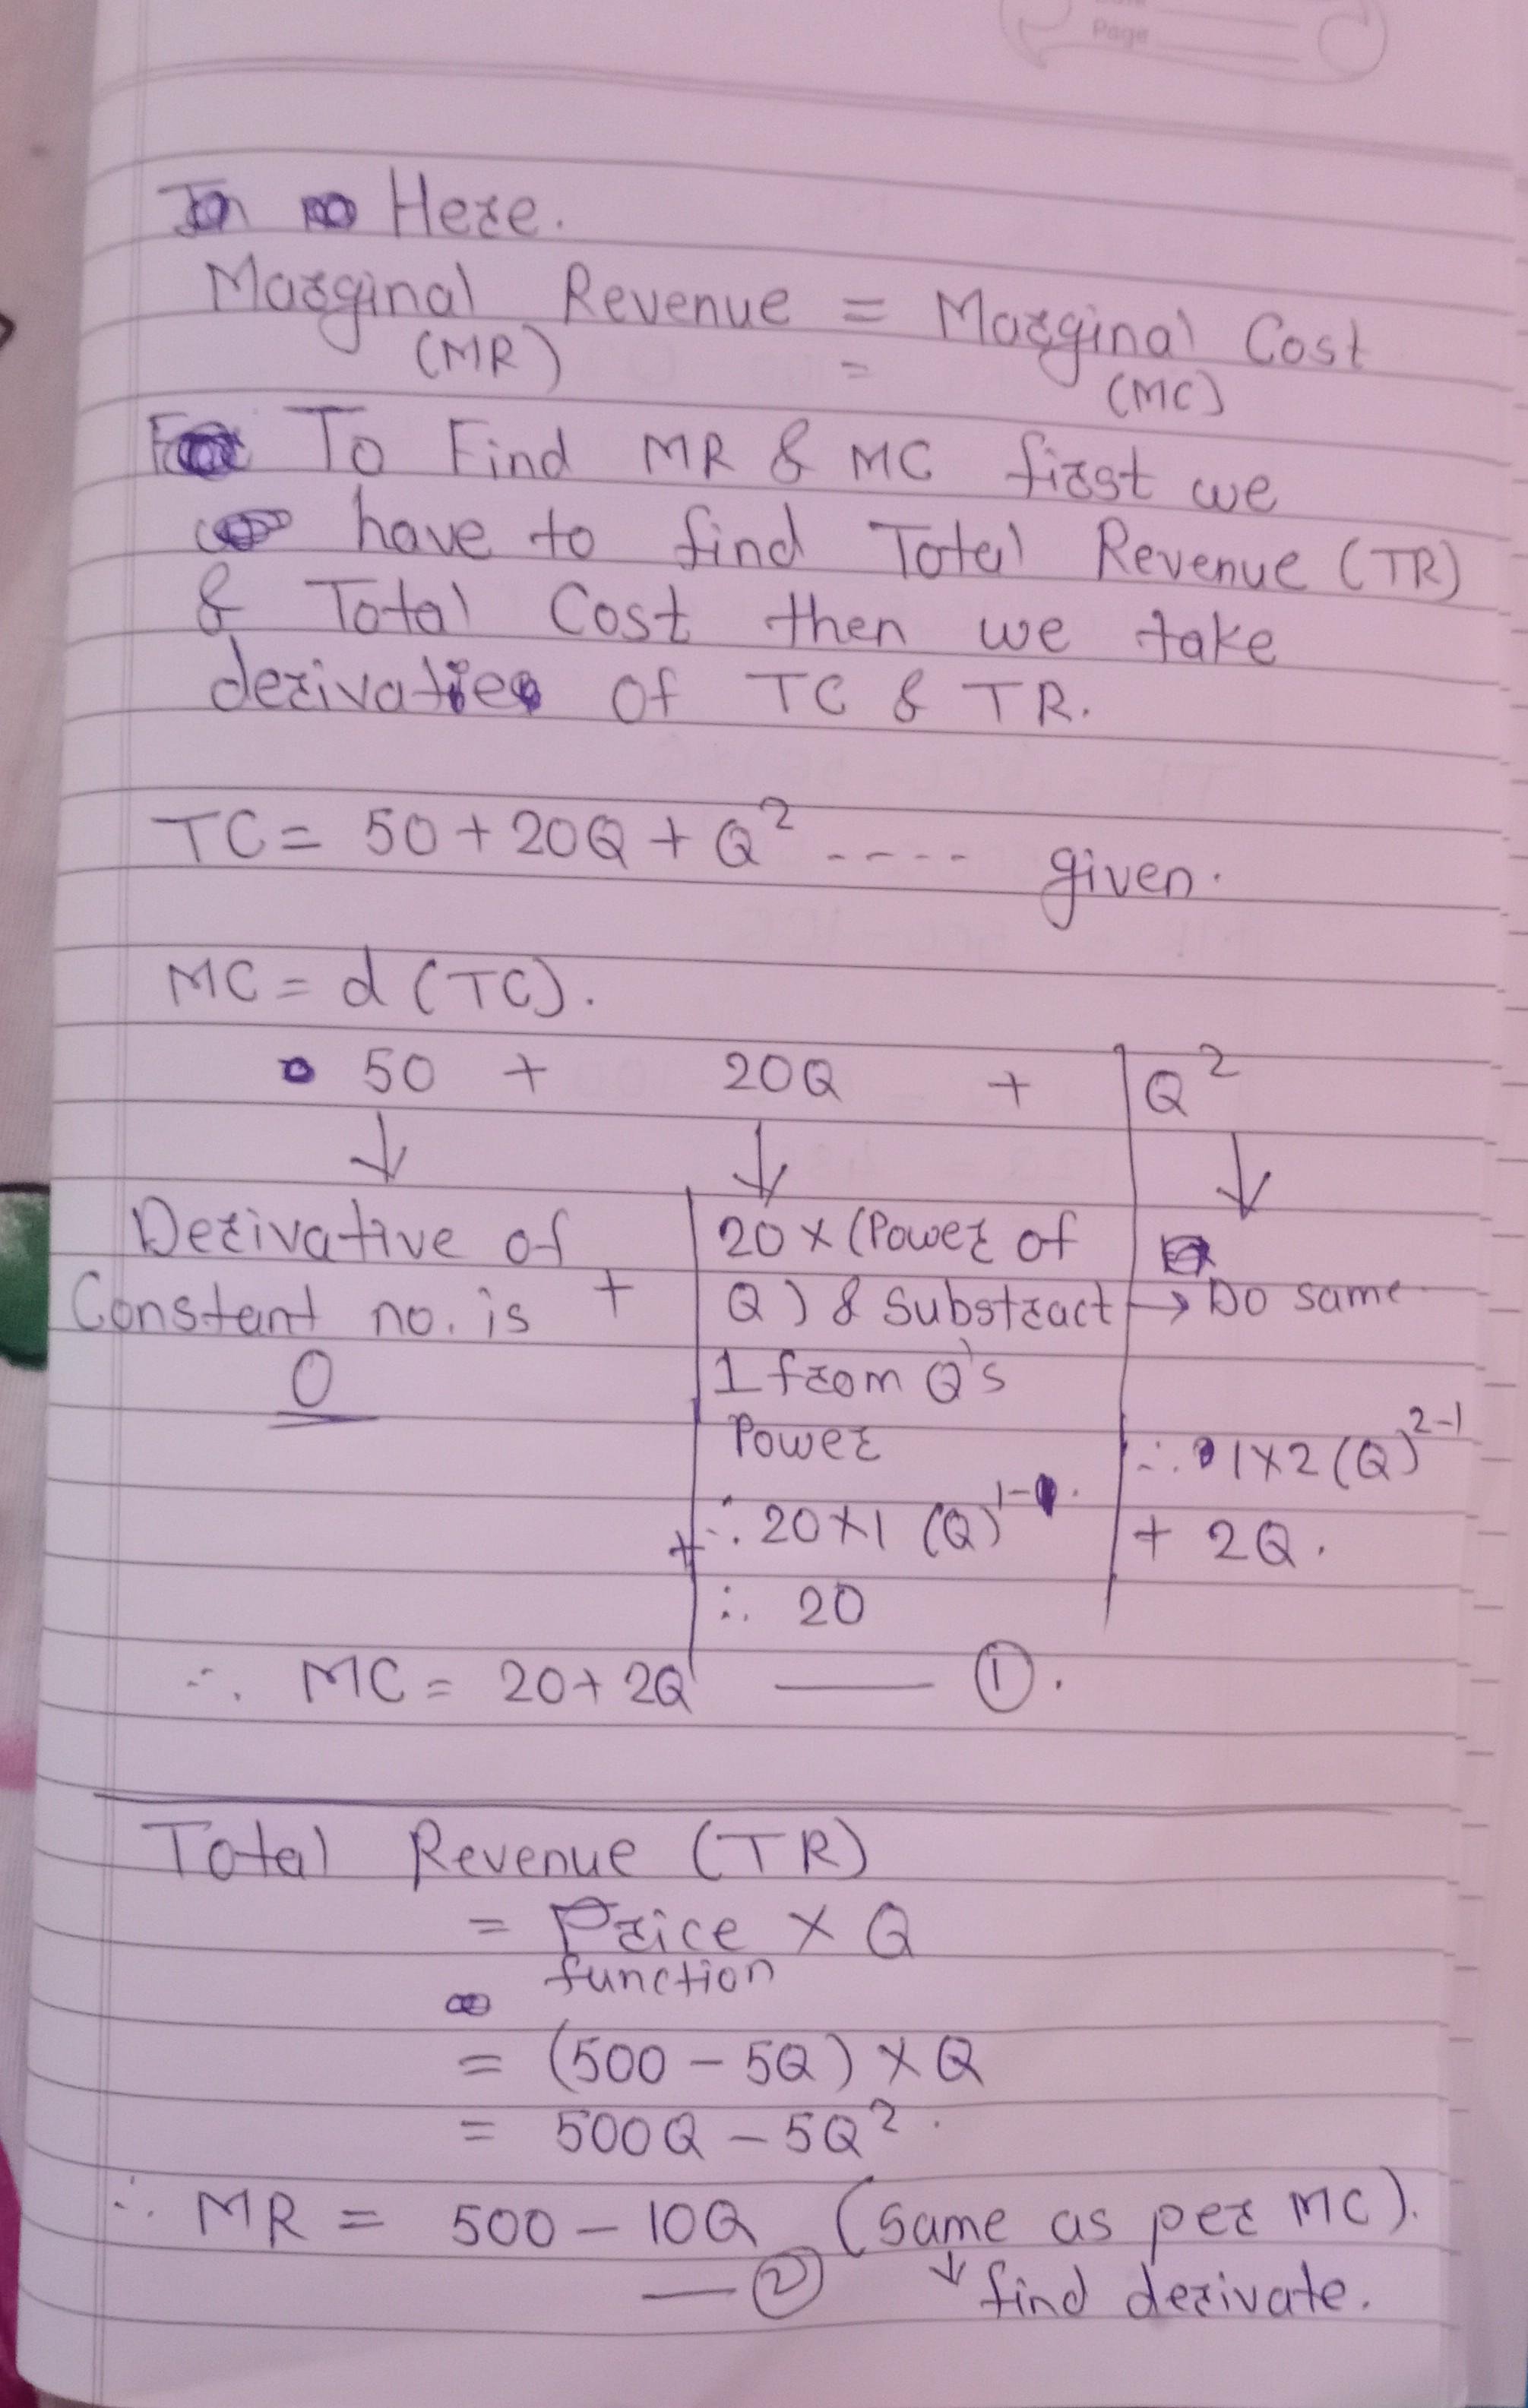 Page
Here.
Marginal Revenue = Marginal Cost
(MR) = (MC)
To Find MR & MC first we
have to find Total Revenue (TR)
& Total Cost then we take
derivatie of TC & TR.
TC = 50 + 20Q + Q² ---- given.
MC = d (TC).
50 + 20Q + Q²
↓ ↓ ↓
Derivative of
Constant no. is +
0
20 x (Power of
Q) & Substract
1 from Q's
Power
+ ∴ 20 x 1 (Q)¹⁻¹.
∴ 20
→ Do same
∴ 1 x 2 (Q)²⁻¹
+ 2Q.
∴ MC = 20 + 2Q —— ①.
Total Revenue (TR)
= Price x Q
function
= (500 - 5Q) x Q
= 500Q - 5Q².
∴ MR = 500 - 10Q (Same as per MC).
— ② ↓ find derivate.